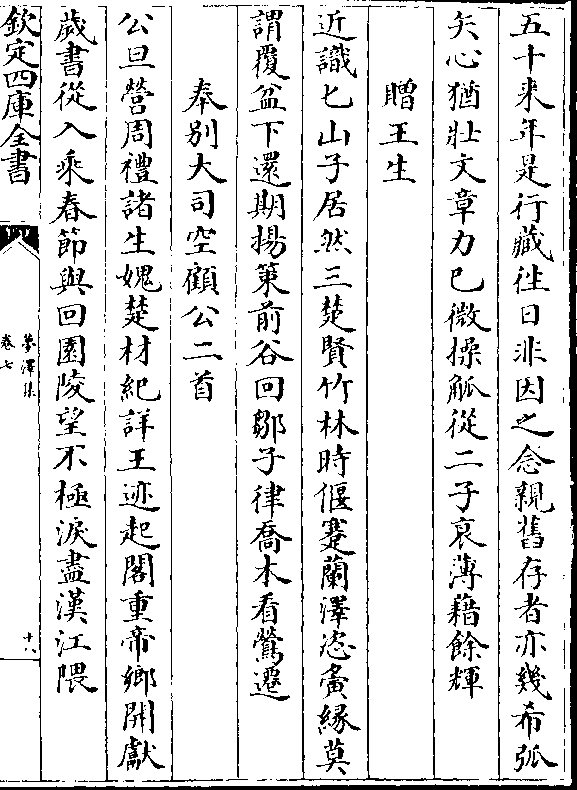 五十来年是行藏往日非因之念親舊存者亦幾希弧
矢心猶壯文章力已微操觚從二子哀薄藉餘輝
贈王生
近識匕山子居然三楚賢竹林時偃蹇蘭澤恣夤緣莫
謂覆盆下還期揚䇿前谷回鄒子律喬木看鶯遷
奉别大司空顧公二首
公旦營周禮諸生媿楚材紀詳王迹起閣重帝鄉開獻
歲書從入乘春節與回園陵望不極淚盡漢江隈
欽定四庫全書
夢澤集
卷七
十八